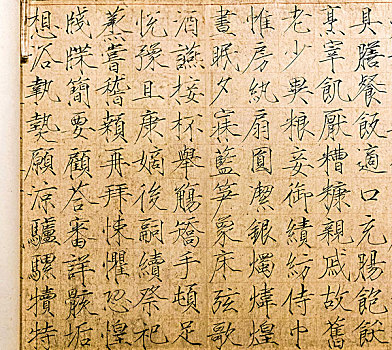 具膳餐飯適口充腸飽飫
烹宰飢厭糟糠親戚故舊
老少異粮妾御績紡侍巾
帷房紈扇圓潔銀燭煒煌
晝眠夕寐藍笋象床弦歌
酒讌接杯舉觴矯手頓足
悅豫且康嫡後嗣續祭祀
蒸嘗稽顙再拜悚懼恐惶
牋牒簡要顧荅審詳骸垢
想浴執熱願涼驢騾犢特